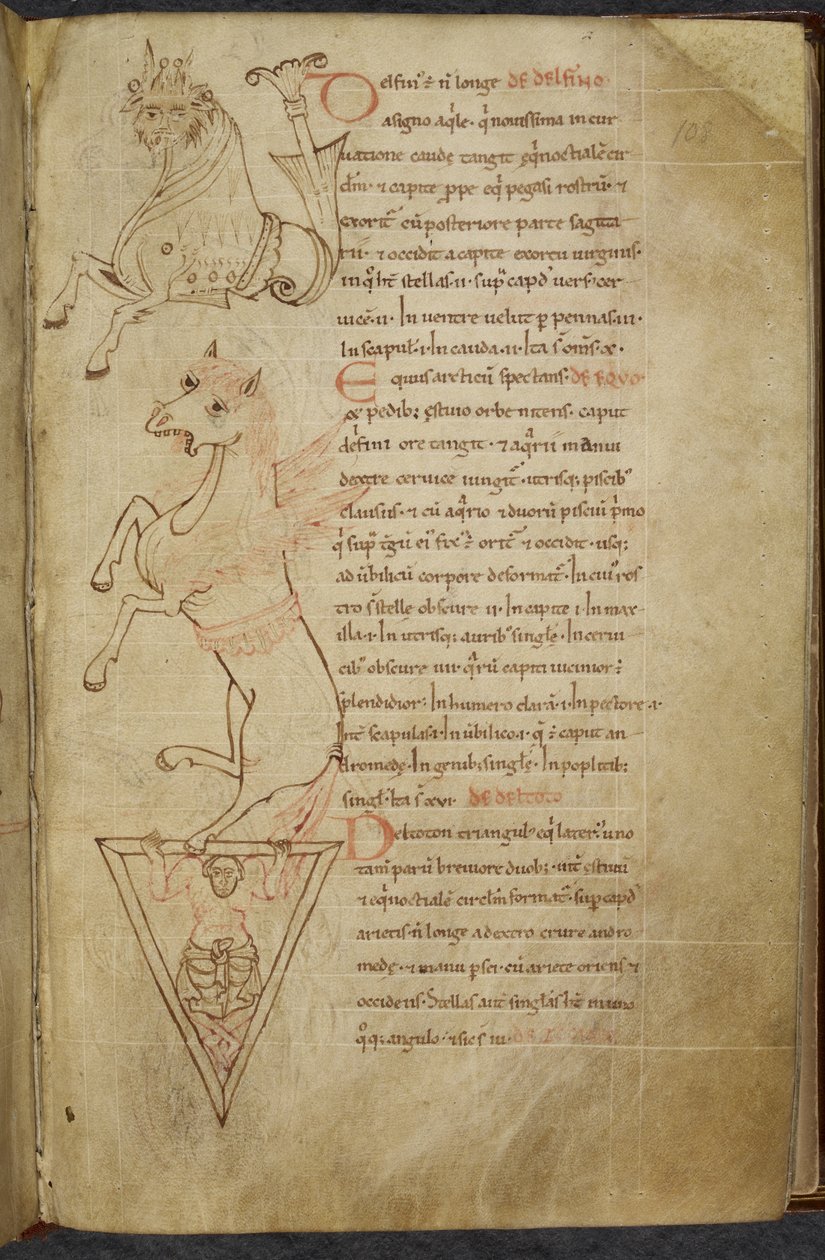 Delfinꝰ ÷ ñ longe DE DELFINO
a signo aq̇le · q̇ nouissima in cur
uatione caudę tangit ęq̇noctialē cir
cłm · ⁊ capite ꝓpe eq̇ pegasi rostrū · ⁊
exoritᷣ cū posteriore parte sagitta
rii · ⁊ occidit a capite exortu uirginis ·
stellas · ii · sup̲ cap̲đ uers · cer
uicē · ii · In uentre uelut p̲ pennas · iii ·
In scapuł · i · In cauda · ii · Ita s̄ om̄s · x ·
Equus arcticū spectans · DE EQVO ·
pedibꝫ ęstiuo orbe nitens · caput
ore tangit · ⁊ manu
dextre ceruice iungitᷣ · utrisqꝫ piscibꝰ
clausus · ⁊ cū aq̇rio ⁊ duorū pisciū p̍mo
q̇ eiꝰ fixꝰ ÷ oritᷣ ⁊ occidit · usqꝫ
ad ūbilicū corpore deformatᷣ · In cuiꝰ ros
tro s̄ stelle obscure ii · In capite i · In max
illa · i · In utrisqꝫ auribꝰ singlę · In cerui
cibꝰ obscure iiii · q̇rū capiti uicinior ÷
splendidior · In humero clara · i · In pectore · i ·
Int̄ scapulas · i · In ūbilico · i · q̄ ÷ caput an
dromedę · In genibꝫ singlę · In poplitibꝫ
singł · Ita s̄ xvi · DE DELTOTO
Deltoton triangulꝰ eq̇ laterꝰ · uno
tam̄ parū breuiore duobꝫ · int̄ ęstiuū
⁊ ęq̇noctialē circłm formatᷣ · sup̲ cap̲đ
arietis · ñ longe a dextro crure andro
medę · ⁊ manu p̲sei · cū ariete oriens ⁊
occidens · Stellas aut̄ singłas ht̄ in uno
qͦqꝫ angulo · ⁊ sic s̄ iii ·
108